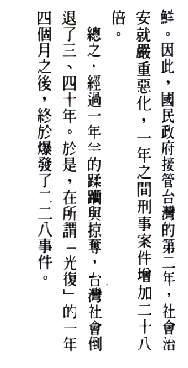 鮮。因此,國民政府接管台灣的第二年,社會治
安就嚴重惡化,一年之間刑事案件增加二十八
倍。
總之,經過一年半的蹂躪與掠奪,台灣社會倒
退了三、四十年。於是,在所謂「光復」的一年
四個月之後,終於爆發了二二八事件。